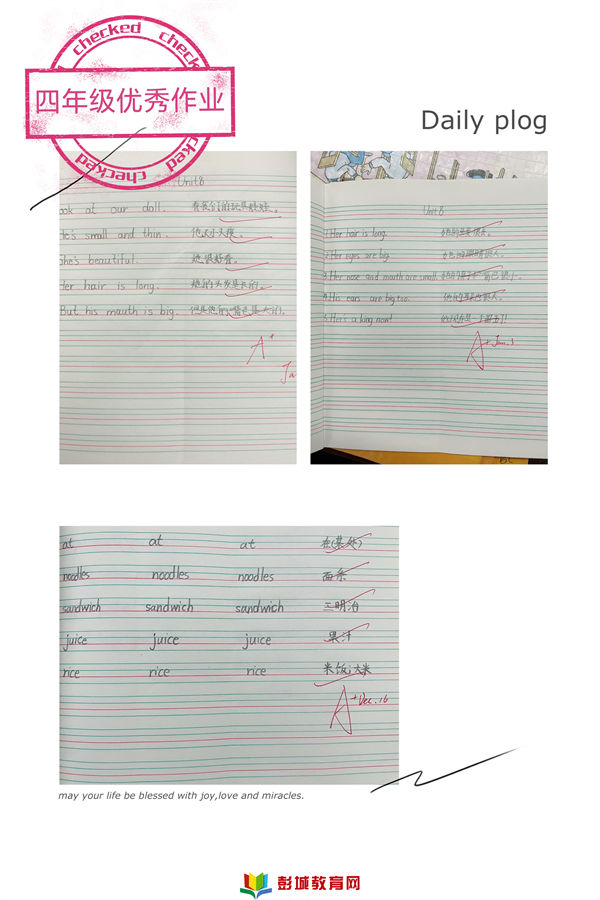 checked checked
四年级优秀作业
checked
Daily plog
Unit 8
ook at our doll. 看我们的玩具娃娃。
He's small and thin. 他又小又瘦。
She's beautiful. 她很好看。
Her hair is long. 她的头发是长的。
But his mouth is big. 但是他的嘴巴是大的。
A+
Ja
Unit 8
1. Her hair is long.
2. Her eyes are big.
3. Her nose and mouth are small.
4. His ears are big too.
5. He's a king now!
A+ Jan. 3
at at at 在(某处)
noodles noodles noodles 面条
sandwich sandwich sandwich 三明治
juice juice juice 果汁
rice rice rice 米饭;大米
A+ Dec. 16
may your life be blessed with joy,love and miracles.
彭城教育网